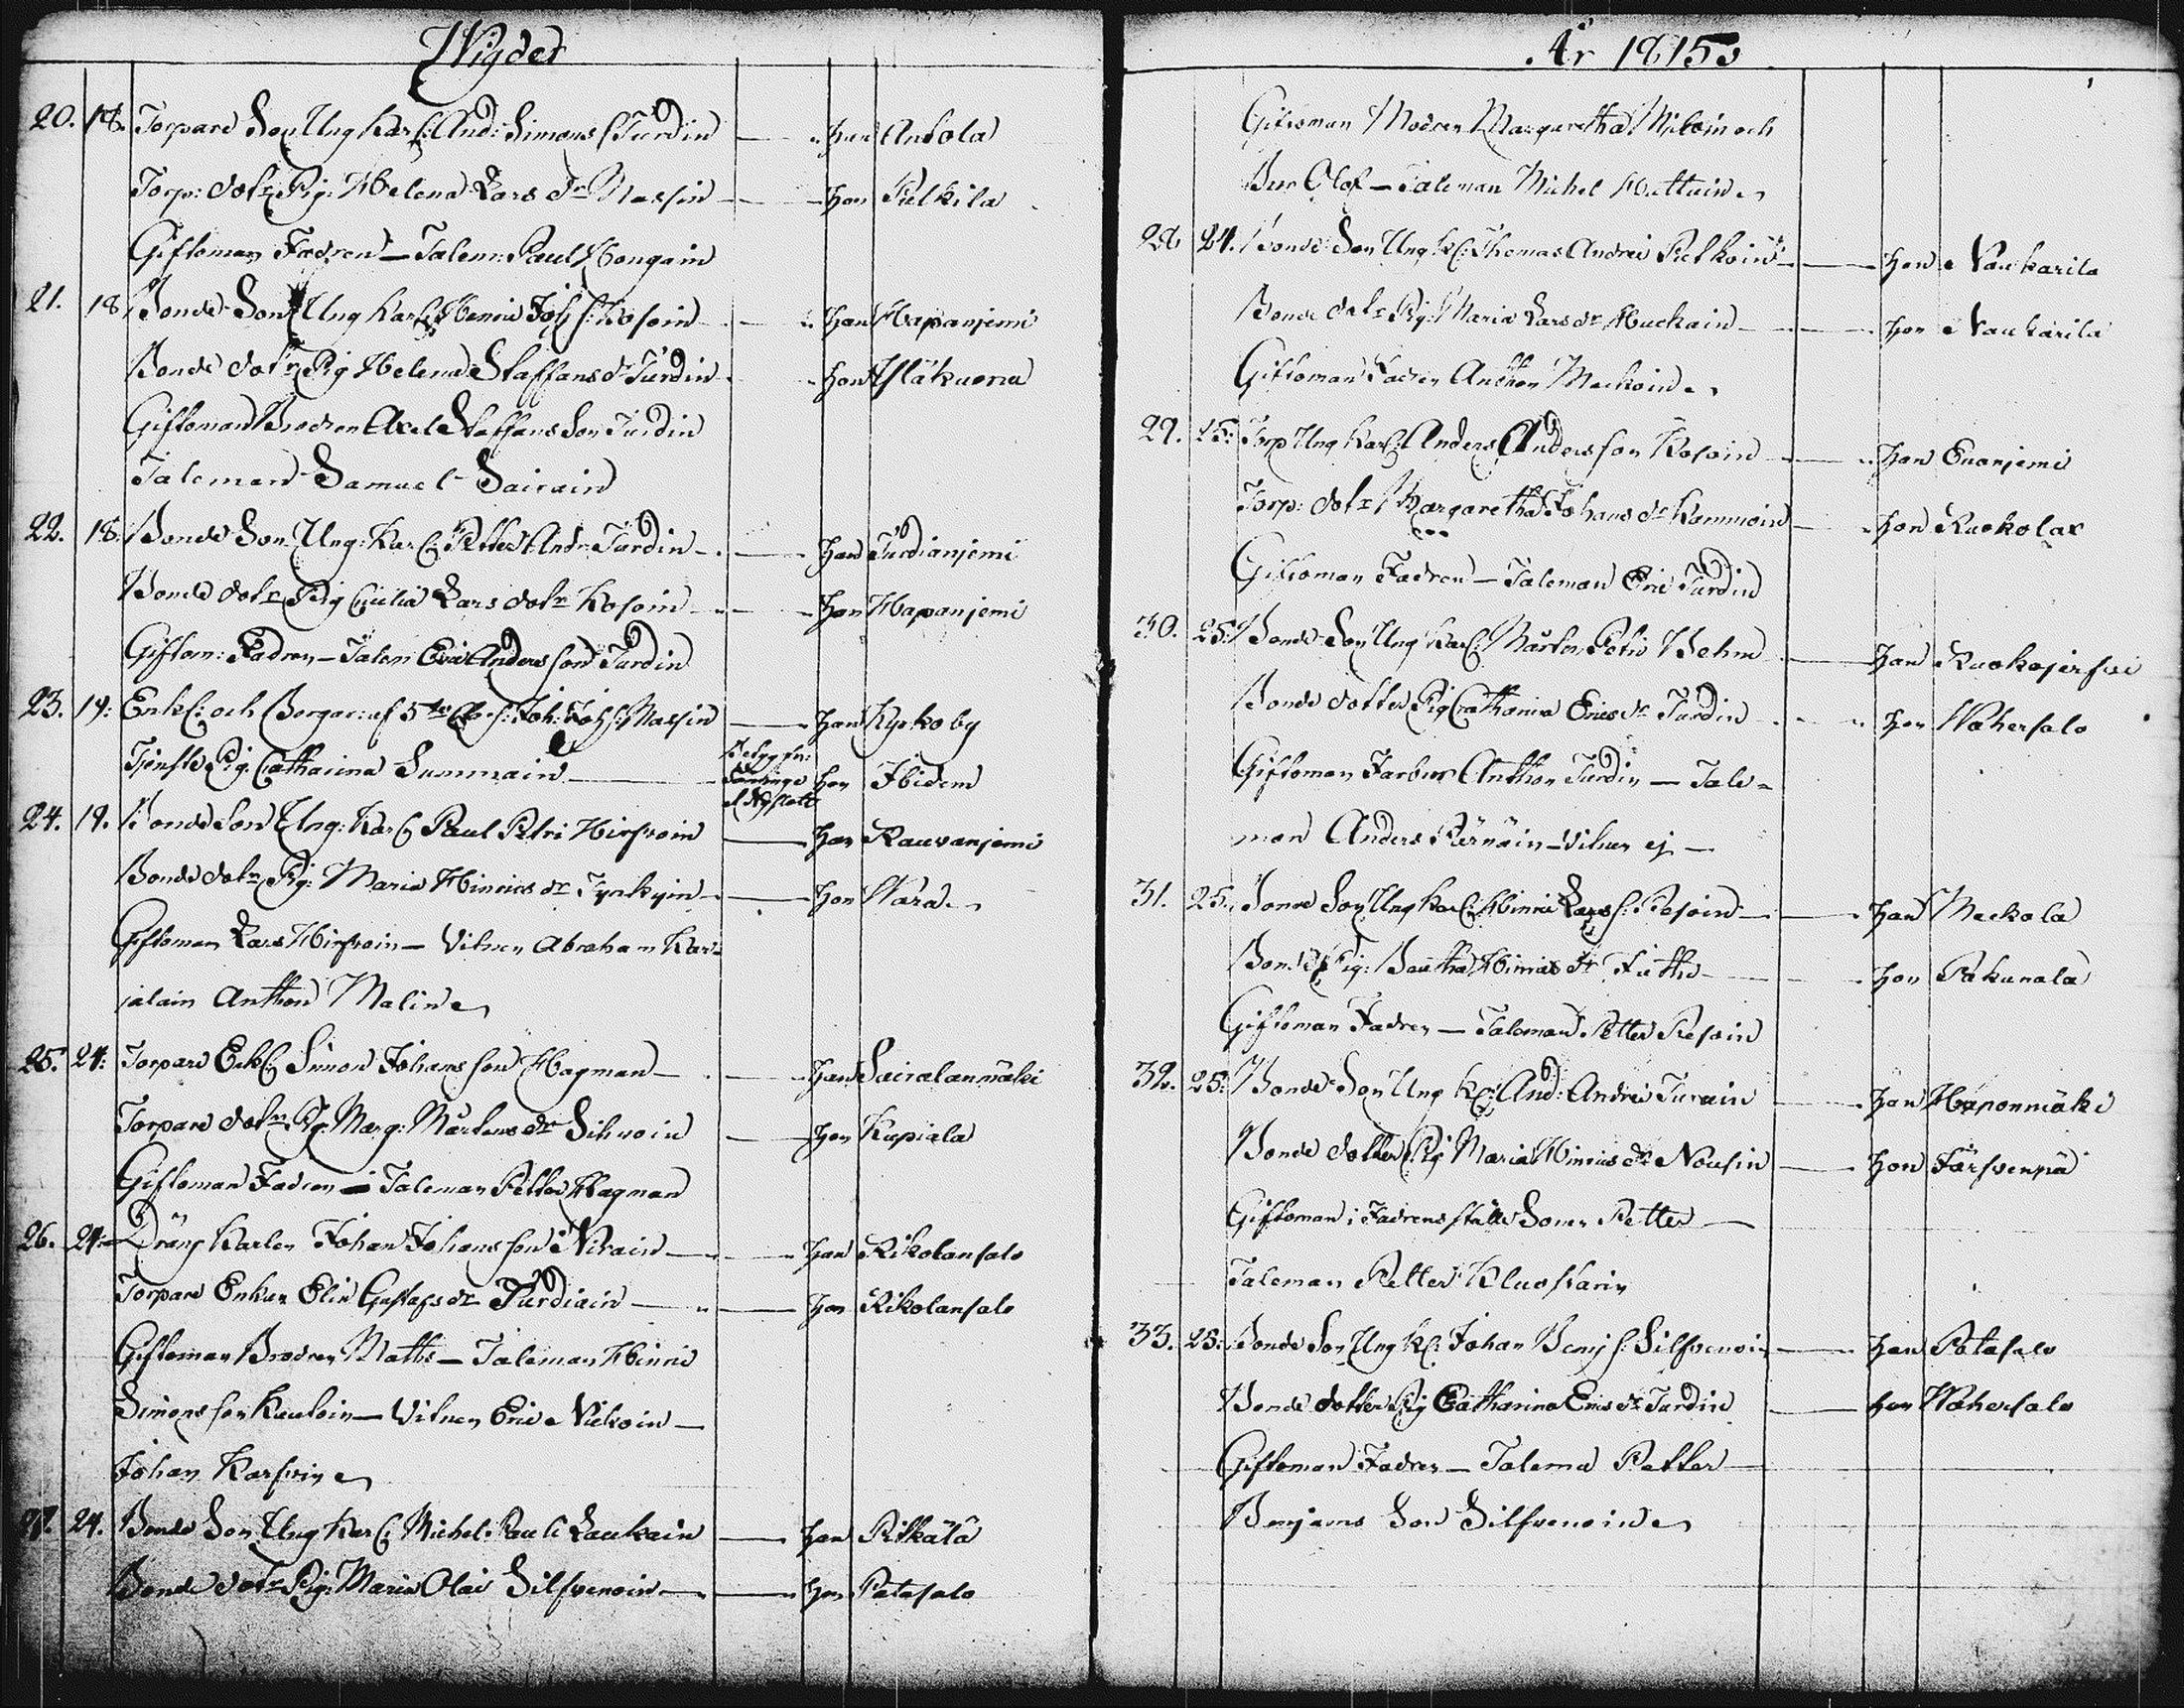 Wigder
20. 18. Torpare Son Ung Karl: And: Simons S. Turdin — Han Ansola
Torp: dotr Pig: Helena Lars dr Nassin — Hon Pelkila
Giftoman Fadren — Talem: Paul Hongain
21. 18 Bonde Son Ung Karl: Henric Joh S: Kosoin — Han Hapanjemi
Bonde dotr Pig Helena Staffans dr Turdin — Hon
Giftoman Brodren Axel Staffans Son Turdin
Taleman Samuel Sairain
22. 18. Bonde Son Ung: Karl: Petter Andr: Turdin — Han Turdianjemi
Bonde dotr Pig Cecilia Lars dotr Kosoin — Hon Hapanjemi
Giftom: Fadren — Talem Eric Anders son Turdin
23. 19: Enkl: och Borgar: af 5te Joh: Joh S: Nassin — Han Kyrkoby
Tjenste Pig. Catharina Summain — Hon Ibidem
24. 19. Bonde Son Ung: Karl Paul Petri Hirfvoin — Han Rauvanjemi
Bonde dotr Pig: Maria Hinrics dr Tynkyin — Hon Wara
Giftoman Lars Hirfvoin — Vitnen Abraham Kar=
jalain Anthon Malin
25. 24: Torpare Enkl: Simon Johans son Hagman — Han Sairalanmäki
Torpare dotr Pig Marg: Mårtens dr Sihvoin — Hon Kupiala
Giftoman Fadren — Taleman Petter Hagman
26. 24: Dräng Karlen Johan Johans son Nirain — Han Rikolansalo
Torpare Enkan Elin Gustafs dr Turdiain — Hon Rikolansalo
Giftoman Brodren Maths — Taleman Hinric
Simons son Kauloin — Vitnen Eric Vickoin —
Johan Karfvin
27. 24. Bonde Son Ung Karl: Michel Pauli Laukain — Han Pitkälä
Bonde dotr Pig: Maria Olai Silfvenoin — Hon Patasalo
År 1815
Giftoman Modren Margaretha och
Bror Olof — Taleman Michel Hattuin
28 24. Bonde Son Ung K: Thomas Andrei Pitkoin — Han Naukarila
Bonde dotr Pig: Maria Lars dr Muckain — Hon Naukarila
Giftoman Fadren Anthon Muckoin
29. 25: Torp Ung Karl: Anders Anders son Kosoin — Han Evanjemi
Torp: dotr Margaretha Johans dr Kammoin — Hon Ruokolax
Giftoman Fadren — Taleman Eric Turdin
30. 25: Bonde Son Ung Karl: Mårten Petri Behm — Han Ruokojerfvi
Bonde dotter Pig Catharina Erics dr Turdin — Hon Wahersalo
Giftoman Farbror Anthon Turdin — Tale=
man Anders Pärnäin — Vitnen ej —
31. 25. Bonde Son Ung Karl: Hinric Lars S: Rosoin — Han Meckola
Bonde Pig: Beatha Hinrics dr — Hon Pakunala
Giftoman Fadren — Taleman Petter Rosoin
32. 25: Bonde Son Ung K: And: Andrei Turain — Han Haponmäki
Bonde dotter Pig Maria Hinrics dr Nousin — Hon Järfvenpä
Giftoman i Fadrens ställe Sonen Petter —
Taleman Petter Kluostarin
33. 25: Bonde Son Ung K: Johan Benj S: Silfvenoin — Han Patasalo
Bonde dotter Pig Catharina Erics dr Turdin — Hon Wahersalo
Giftoman Fadren — Talema Petter
Benjams Son Silfvenoin